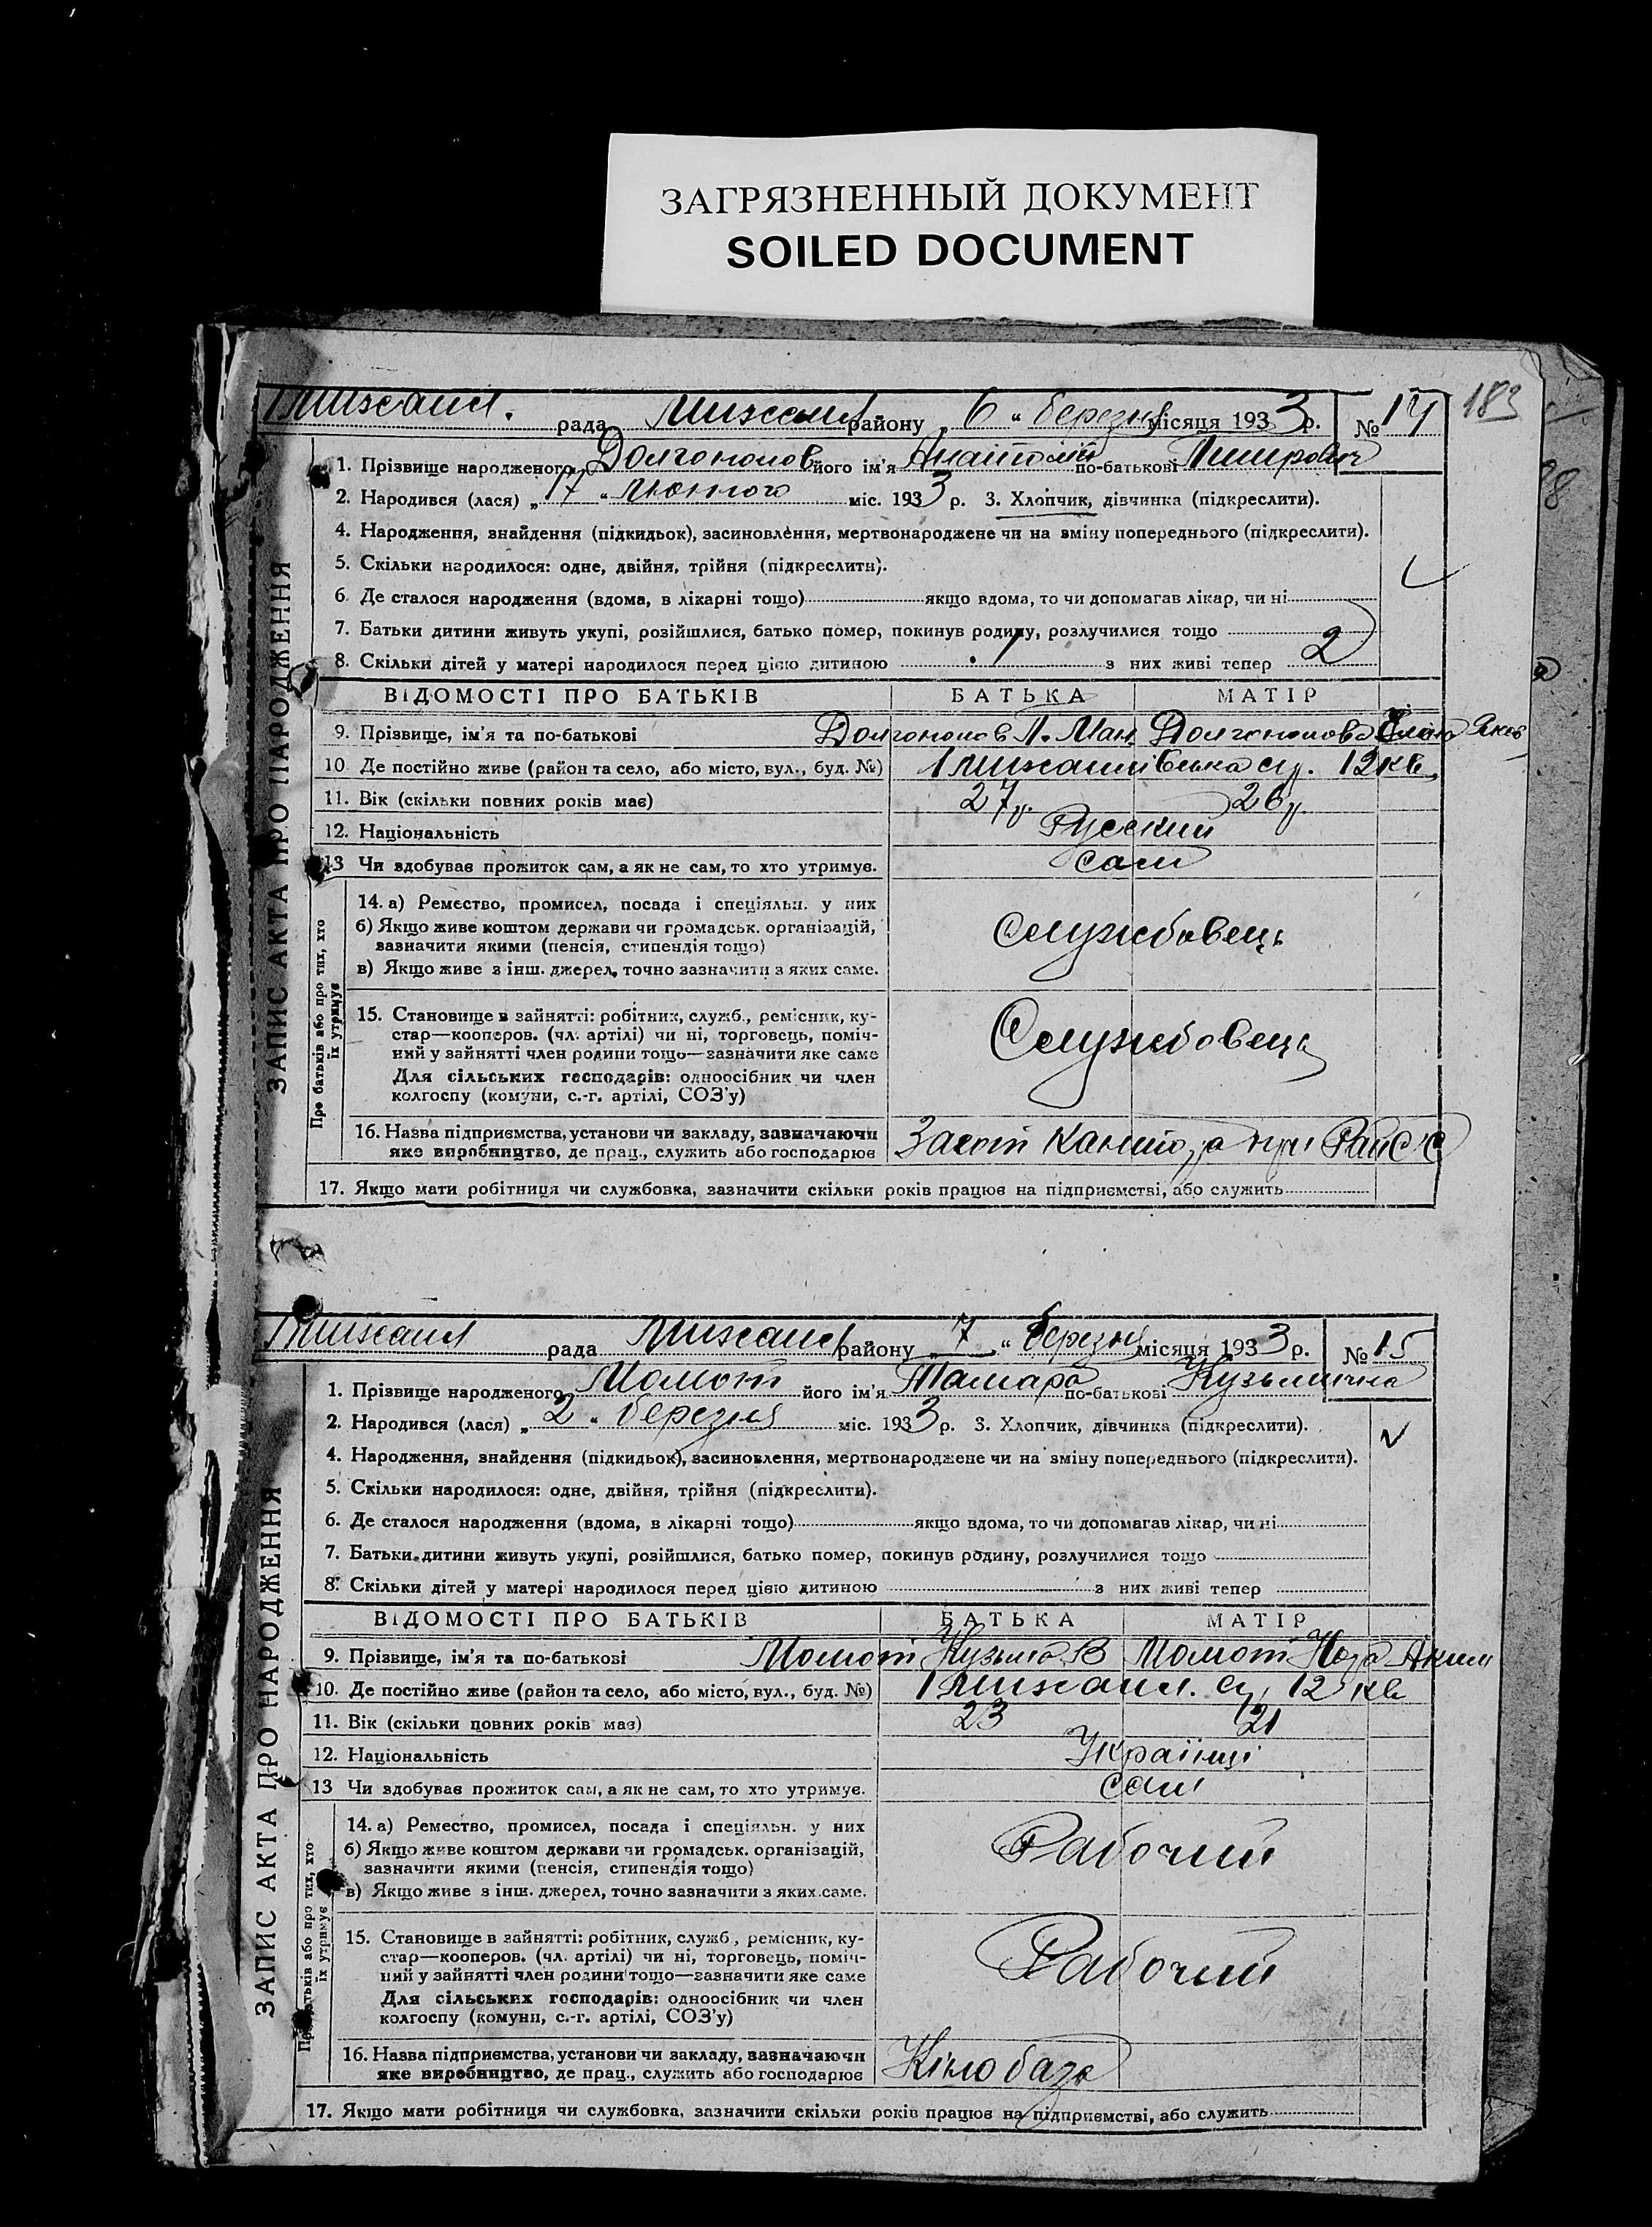 ЗАГРЯЗНЕННЫЙ ДОКУМЕНТ
SOILED DOCUMENT
183
рада района 6 " березня місяця 1933 р. № 14
1. Прізвище народженого Долгополов його ім'я Анатолій по-батькові
2. Народився (лася) „ 17 " лютого міс. 1933 р. 3. Хлопчик, дівчинка (підкреслити).
4. Народження, знайдення (підкидьок), засиновлення, мертвонароджене чи на зміну попереднього (підкреслити).
5. Скільки народилося: одне, двійня, трійня (підкреслити).
6. Де сталося народження (вдома, в лікарні тощо) якщо вдома, то чи допомагав лікар, чи ні
7. Батьки дитини живуть укупі, розійшлися, батько помер, покинув родину, розлучилися тощо
8. Скільки дітей у матері народилося перед цією дитиною 1 з них живі тепер 2
ЗАПИС АКТА ПРО НАРОДЖЕННЯ
ВІДОМОСТІ ПРО БАТЬКІВ БАТЬКА МАТІР
9. Прізвище, ім'я та по-батькові Долгополов Долгополова Яков
10. Де постійно живе (район та село, або місто, вул., буд. №) 12 кв
11. Вік (скільки повних років має) 27 р. 26 р.
12. Національність Русский
13 Чи здобуває прожиток сам, а як не сам, то хто утримує. сам
Про батьків або про тих, хто їх утримує
14. а) Ремество, промисел, посада і спеціяльн. у них
б) Якщо живе коштом держави чи громадськ. організацій,
зазначити якими (пенсія, стипендія тощо)
Службовець
в) Якщо живе з інш. джерел, точно зазначити з яких саме.
15. Становище в зайнятті: робітник, служб., ремісник, ку-
стар—кооперов. (чл. артілі) чи ні, торговець, поміч-
ний у зайнятті член родини тощо—зазначити яке саме
Службовець
Для сільських господарів: одноосібник чи член
колгоспу (комуни, с.-г. артілі, СОЗ'у)
16. Назва підприємства, установи чи закладу, зазначаючи
яке виробництво, де прац., служить або господарює при
17. Якщо мати робітниця чи службовка, зазначити скільки років працює на підприємстві, або служить
рада району „ 7 " березня місяця 1933 р. № 15
1. Прізвище народженого Момот його ім'я Тамара по-батькові Кузьмична
2. Народився (лася) „ 2 " березня міс. 1933 р. 3. Хлопчик, дівчинка (підкреслити).
4. Народження, знайдення (підкидьок), засиновлення, мертвонароджене чи на зміну попереднього (підкреслити).
5. Скільки народилося: одне, двійня, трійня (підкреслити).
6. Де сталося народження (вдома, в лікарні тощо) якщо вдома, то чи допомагав лікар, чи ні
7. Батьки дитини живуть укупі, розійшлися, батько помер, покинув родину, розлучилися тощо
8. Скільки дітей у матері народилося перед цією дитиною з них живі тепер
ЗАПИС АКТА ПРО НАРОДЖЕННЯ
ВІДОМОСТІ ПРО БАТЬКІВ БАТЬКА МАТІР
9. Прізвище, ім'я та по-батькові Момот Кузьма В Момот Аким
10. Де постійно живе (район та село, або місто, вул., буд. №) 12 кв
11. Вік (скільки повних років має) 23 21
12. Національність Українці
13 Чи здобуває прожиток сам, а як не сам, то хто утримує. сам
14. а) Ремество, промисел, посада і спеціяльн. у них
б) Якщо живе коштом держави чи громадськ. організацій,
зазначити якими (пенсія, стипендія тощо)
Рабочий
в) Якщо живе з інш. джерел, точно зазначити з яких саме.
15. Становище в зайнятті: робітник, служб., ремісник, ку-
стар—кооперов. (чл. артілі) чи ні, торговець, поміч-
ний у зайнятті член родини тощо—зазначити яке саме
Рабочий
Для сільських господарів: одноосібник чи член
колгоспу (комуни, с.-г. артілі, СОЗ'у)
16. Назва підприємства, установи чи закладу, зазначаючи
яке виробництво, де прац., служить або господарює Кінобаза
17. Якщо мати робітниця чи службовка, зазначити скільки років працює на підприємстві, або служить